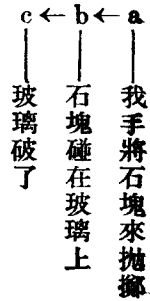 c←b←a
我手將石塊來抛擲
石塊碰在玻璃上
玻璃破了